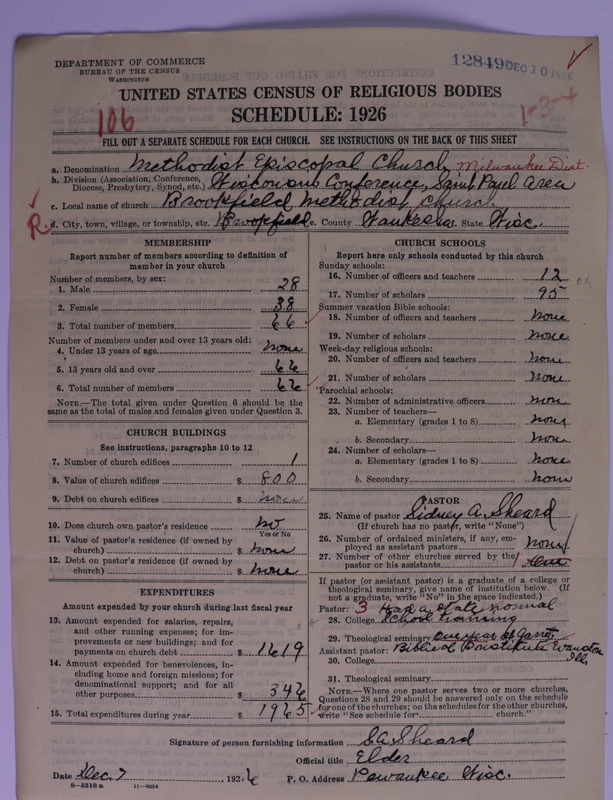 DEPARTMENT OF COMMERCE
BUREAU OF THE CENSUS
WASHINGTON
12849 DEC 10 1926
UNITED STATES CENSUS OF RELIGIOUS BODIES
SCHEDULE: 1926
106
1-3-4
FILL OUT A SEPARATE SCHEDULE FOR EACH CHURCH. SEE INSTRUCTIONS ON THE BACK OF THIS SHEET
a. Denomination Methodist Episcopal Church Milwaukee Dist.
b. Division (Association, Conference, Diocese, Presbytery, Synod, etc.) Wisconsin Conference, Saint Paul Area
c. Local name of church Brookfield Methodist Church
R. d. City, town, village, or township, etc. Brookfield e. County Waukesha State Wisc.
MEMBERSHIP
Report number of members according to definition of
member in your church
Number of members, by sex:
1. Male 28
2. Female 38
3. Total number of members 66
Number of members under and over 13 years old:
4. Under 13 years of age None
5. 13 years old and over 66
6. Total number of members 66
NOTE.—The total given under Question 6 should be the
same as the total of males and females given under Question 3.
CHURCH BUILDINGS
See instructions, paragraphs 10 to 12
7. Number of church edifices 1
8. Value of church edifices $ 800
9. Debt on church edifices $ None
10. Does church own pastor's residence No
Yes or No
11. Value of pastor's residence (if owned by
church) $ None
12. Debt on pastor's residence (if owned by
church) $ None
EXPENDITURES
Amount expended by your church during last fiscal year
13. Amount expended for salaries, repairs,
and other running expenses; for im-
provements or new buildings; and for
payments on church debt $ 1619
14. Amount expended for benevolences, in-
cluding home and foreign missions; for
denominational support; and for all
other purposes $ 346
15. Total expenditures during year $ 1965
CHURCH SCHOOLS
Report here only schools conducted by this church
Sunday schools:
16. Number of officers and teachers 12
17. Number of scholars 95
Summer vacation Bible schools:
18. Number of officers and teachers None
19. Number of scholars None
Week-day religious schools:
20. Number of officers and teachers None
21. Number of scholars None
Parochial schools:
22. Number of administrative officers None
23. Number of teachers—
a. Elementary (grades 1 to 8) None
b. Secondary None
24. Number of scholars—
a. Elementary (grades 1 to 8) None
b. Secondary None
PASTOR
25. Name of pastor Sidney A. Sheard
(If church has no pastor, write "None")
26. Number of ordained ministers, if any, em-
ployed as assistant pastors None
27. Number of other churches served by the
pastor or his assistants
If pastor (or assistant pastor) is a graduate of a college or
theological seminary, give name of institution below. (If
not a graduate, write "No" in the space indicated.)
Pastor: 3 Had a State Normal
28. College School training
29. Theological seminary One year at Garrett
Assistant pastor: Biblical Institute Evanston
30. College Ills
31. Theological seminary
NOTE.—Where one pastor serves two or more churches,
Questions 28 and 29 should be answered only on the schedule
for one of the churches; on the schedules for the other churches,
write "See schedule for church."
Signature of person furnishing information S A Sheard
Official title Elder
Date Dec. 7, 1926 P. O. Address Pewaukee Wisc.
8—5518 a 11—9024